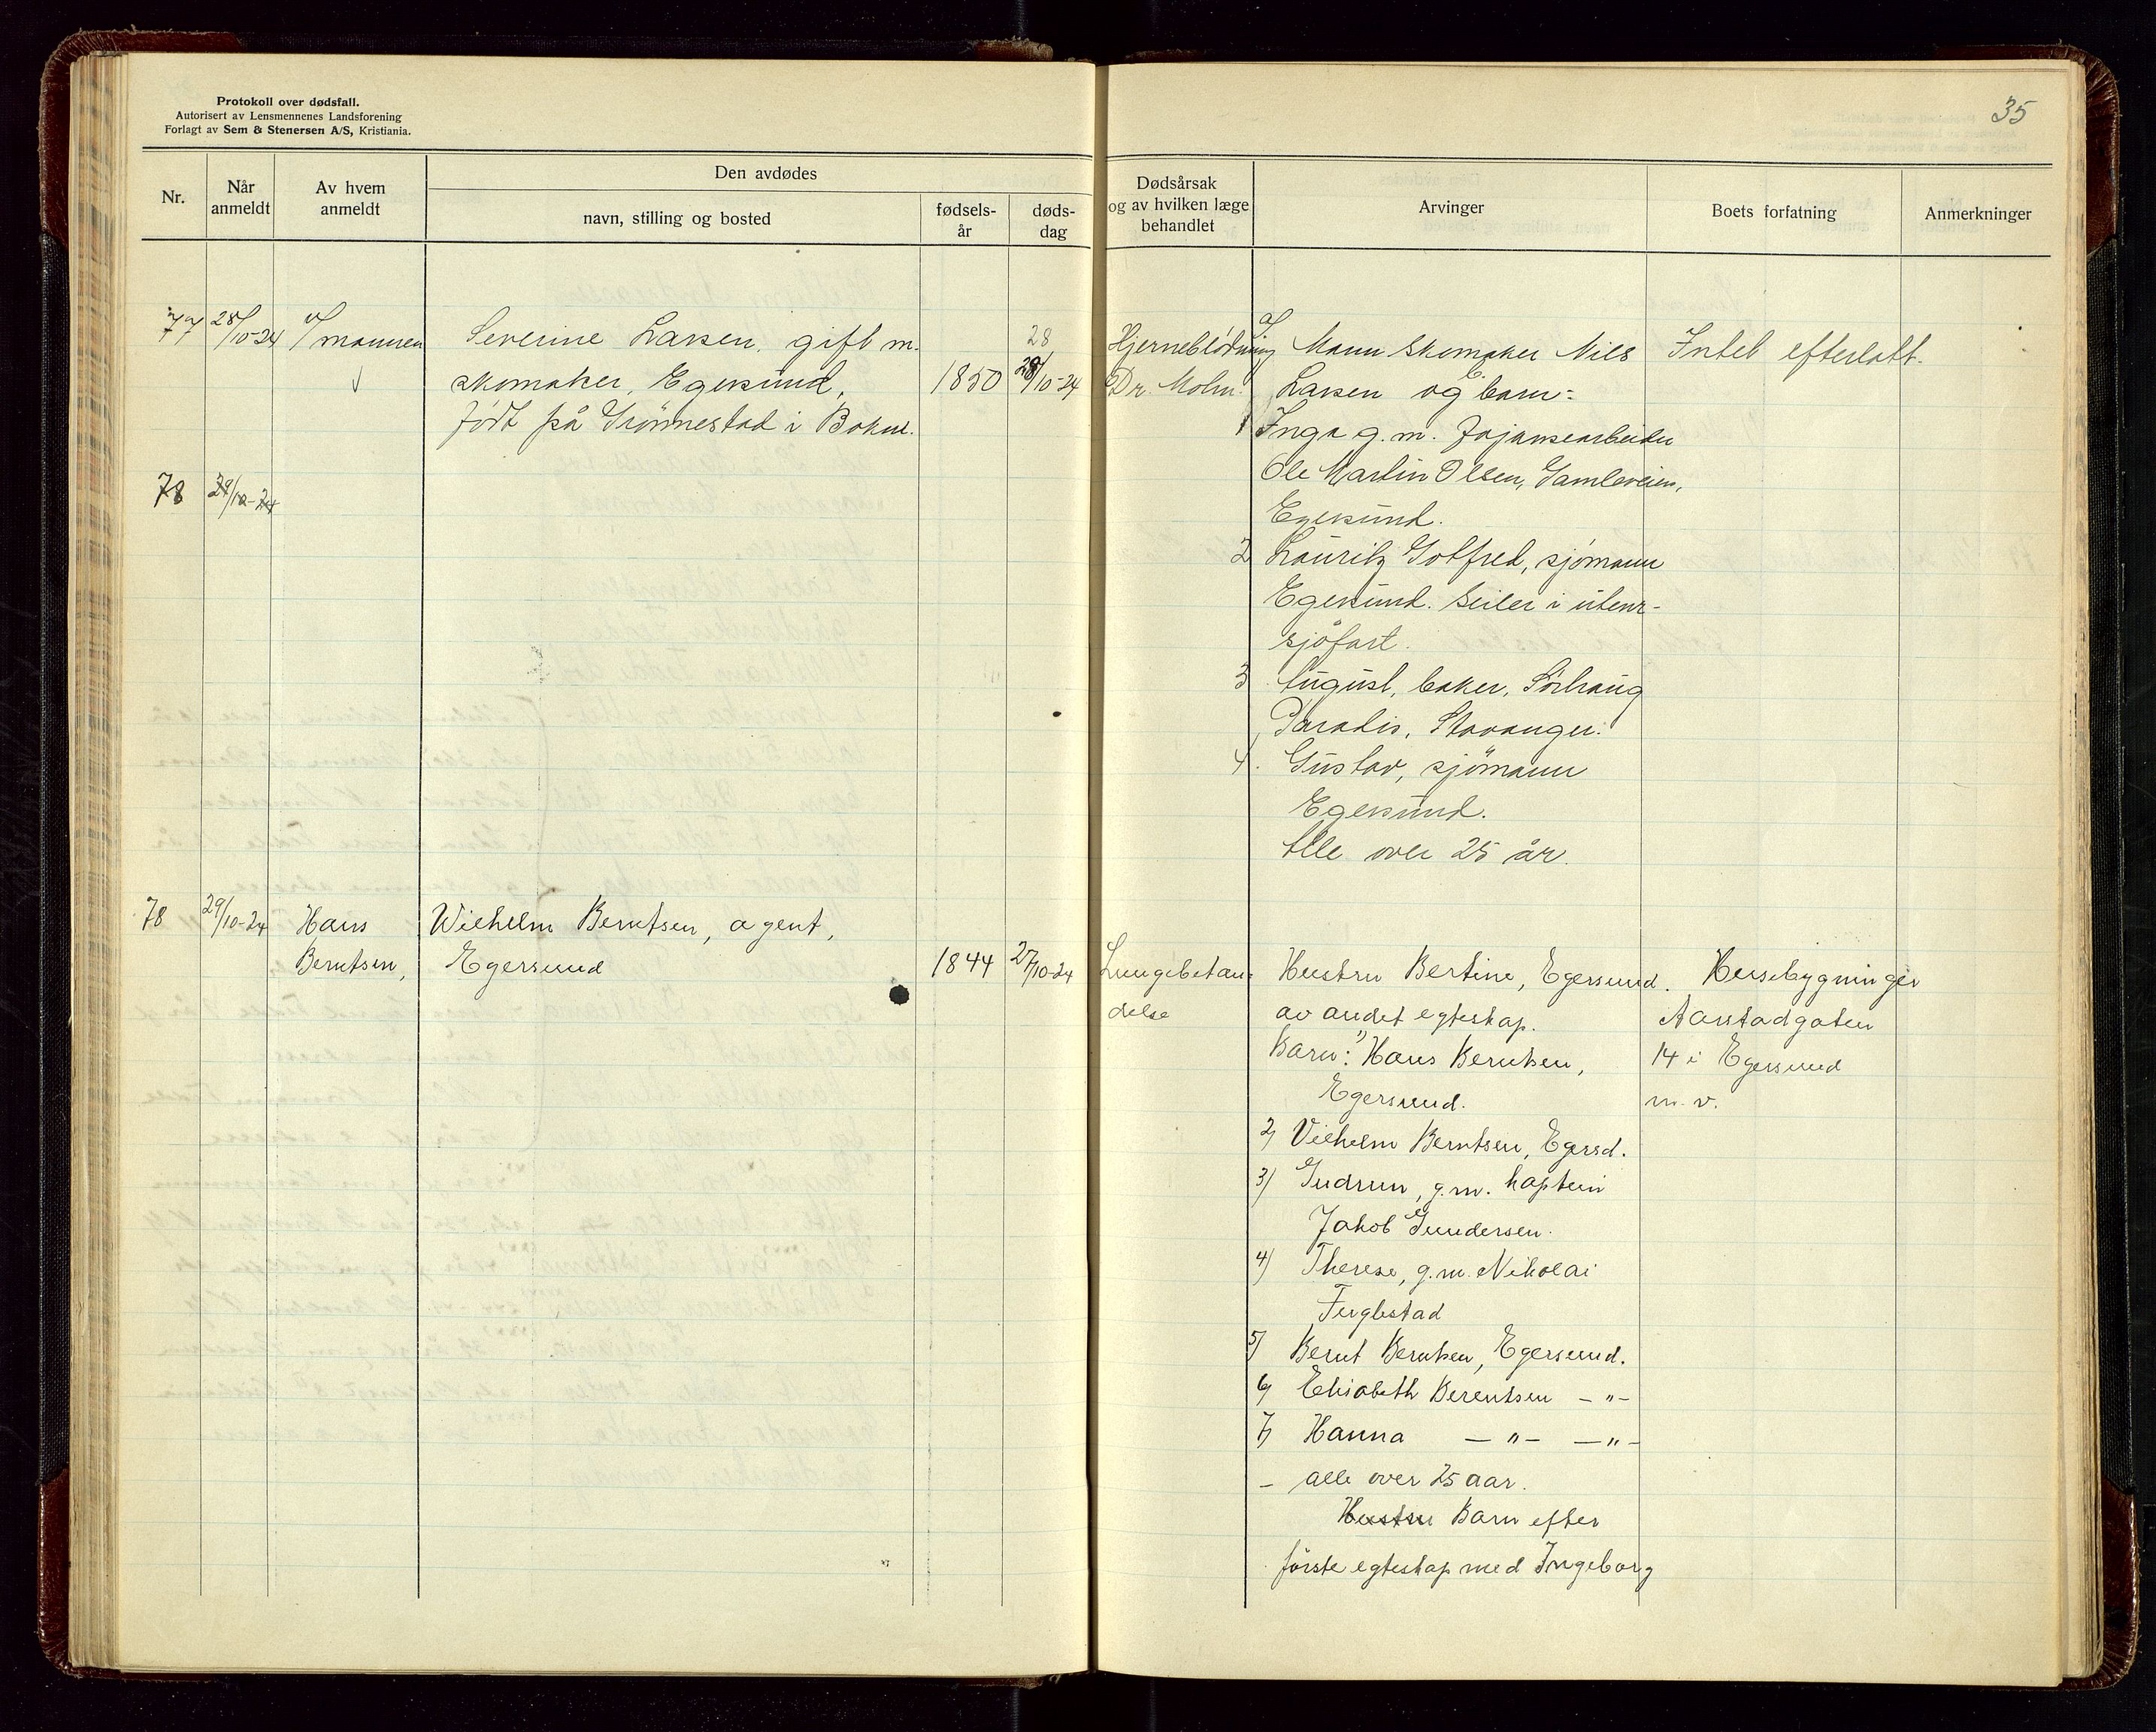 Protokoll over dødsfall.
Autorisert av Lensmennenes Landsforening
Forlagt av Sem & Stenersen A/S, Kristiania.
35
Nr.
Når anmeldt
Av hvem anmeldt
Den avdødes
navn, stilling og bosted
fødsels-år
døds-dag
Dødsårsak og av hvilken læge behandlet
Arvinger
Boets forfatning
Anmerkninger
77 28/10-24 v/ mannen
Severine Larsen, gift m.
skomaker, Egersund,
født på Grönnestad i Bokn.
1850
28
28/10-24
Hjerneblödning
Dr. Molm.
Mann skomaker Nils
Larsen og barn:
1 Inga g.m. fajansearbeider
Ole Martin Olsen, Gamleveien,
Egersund.
2 Lauritz Gotfred, sjömann
Egersund. Seiler i utenr-
sjöfart.
3 August, baker, Sörhaug
Paradis, Stavanger.
4. Gustav, sjömann
Egersund.
Alle over 25 år.
Intet efterlatt.
78 29/10-24
78 29/10-24 Hans
Berntsen,
Wilhelm Berntsen, agent,
Egersund
1844
27/10-24
Lungebetæn-
delse
Hustru Bertine, Egersund.
av andet egteskap.
Barn: 1) Hans Berntsen,
Egersund.
2) Vilhelm Berntsen, Egersd.
3) Gudrun, g.m. kaptein
Jakob Gundersen.
4) Therese, g.m. Nikolai
Fuglestad
5) Bernt Berntsen, Egersund.
6) Elisabeth Berentsen -"-
7) Hanna -"- -"-
- alle over 25 aar.
Hustru Barn efter
förste egteskap med Ingeborg
Husebygninger
Aarstadgaten
14 i Egersund
m. v.